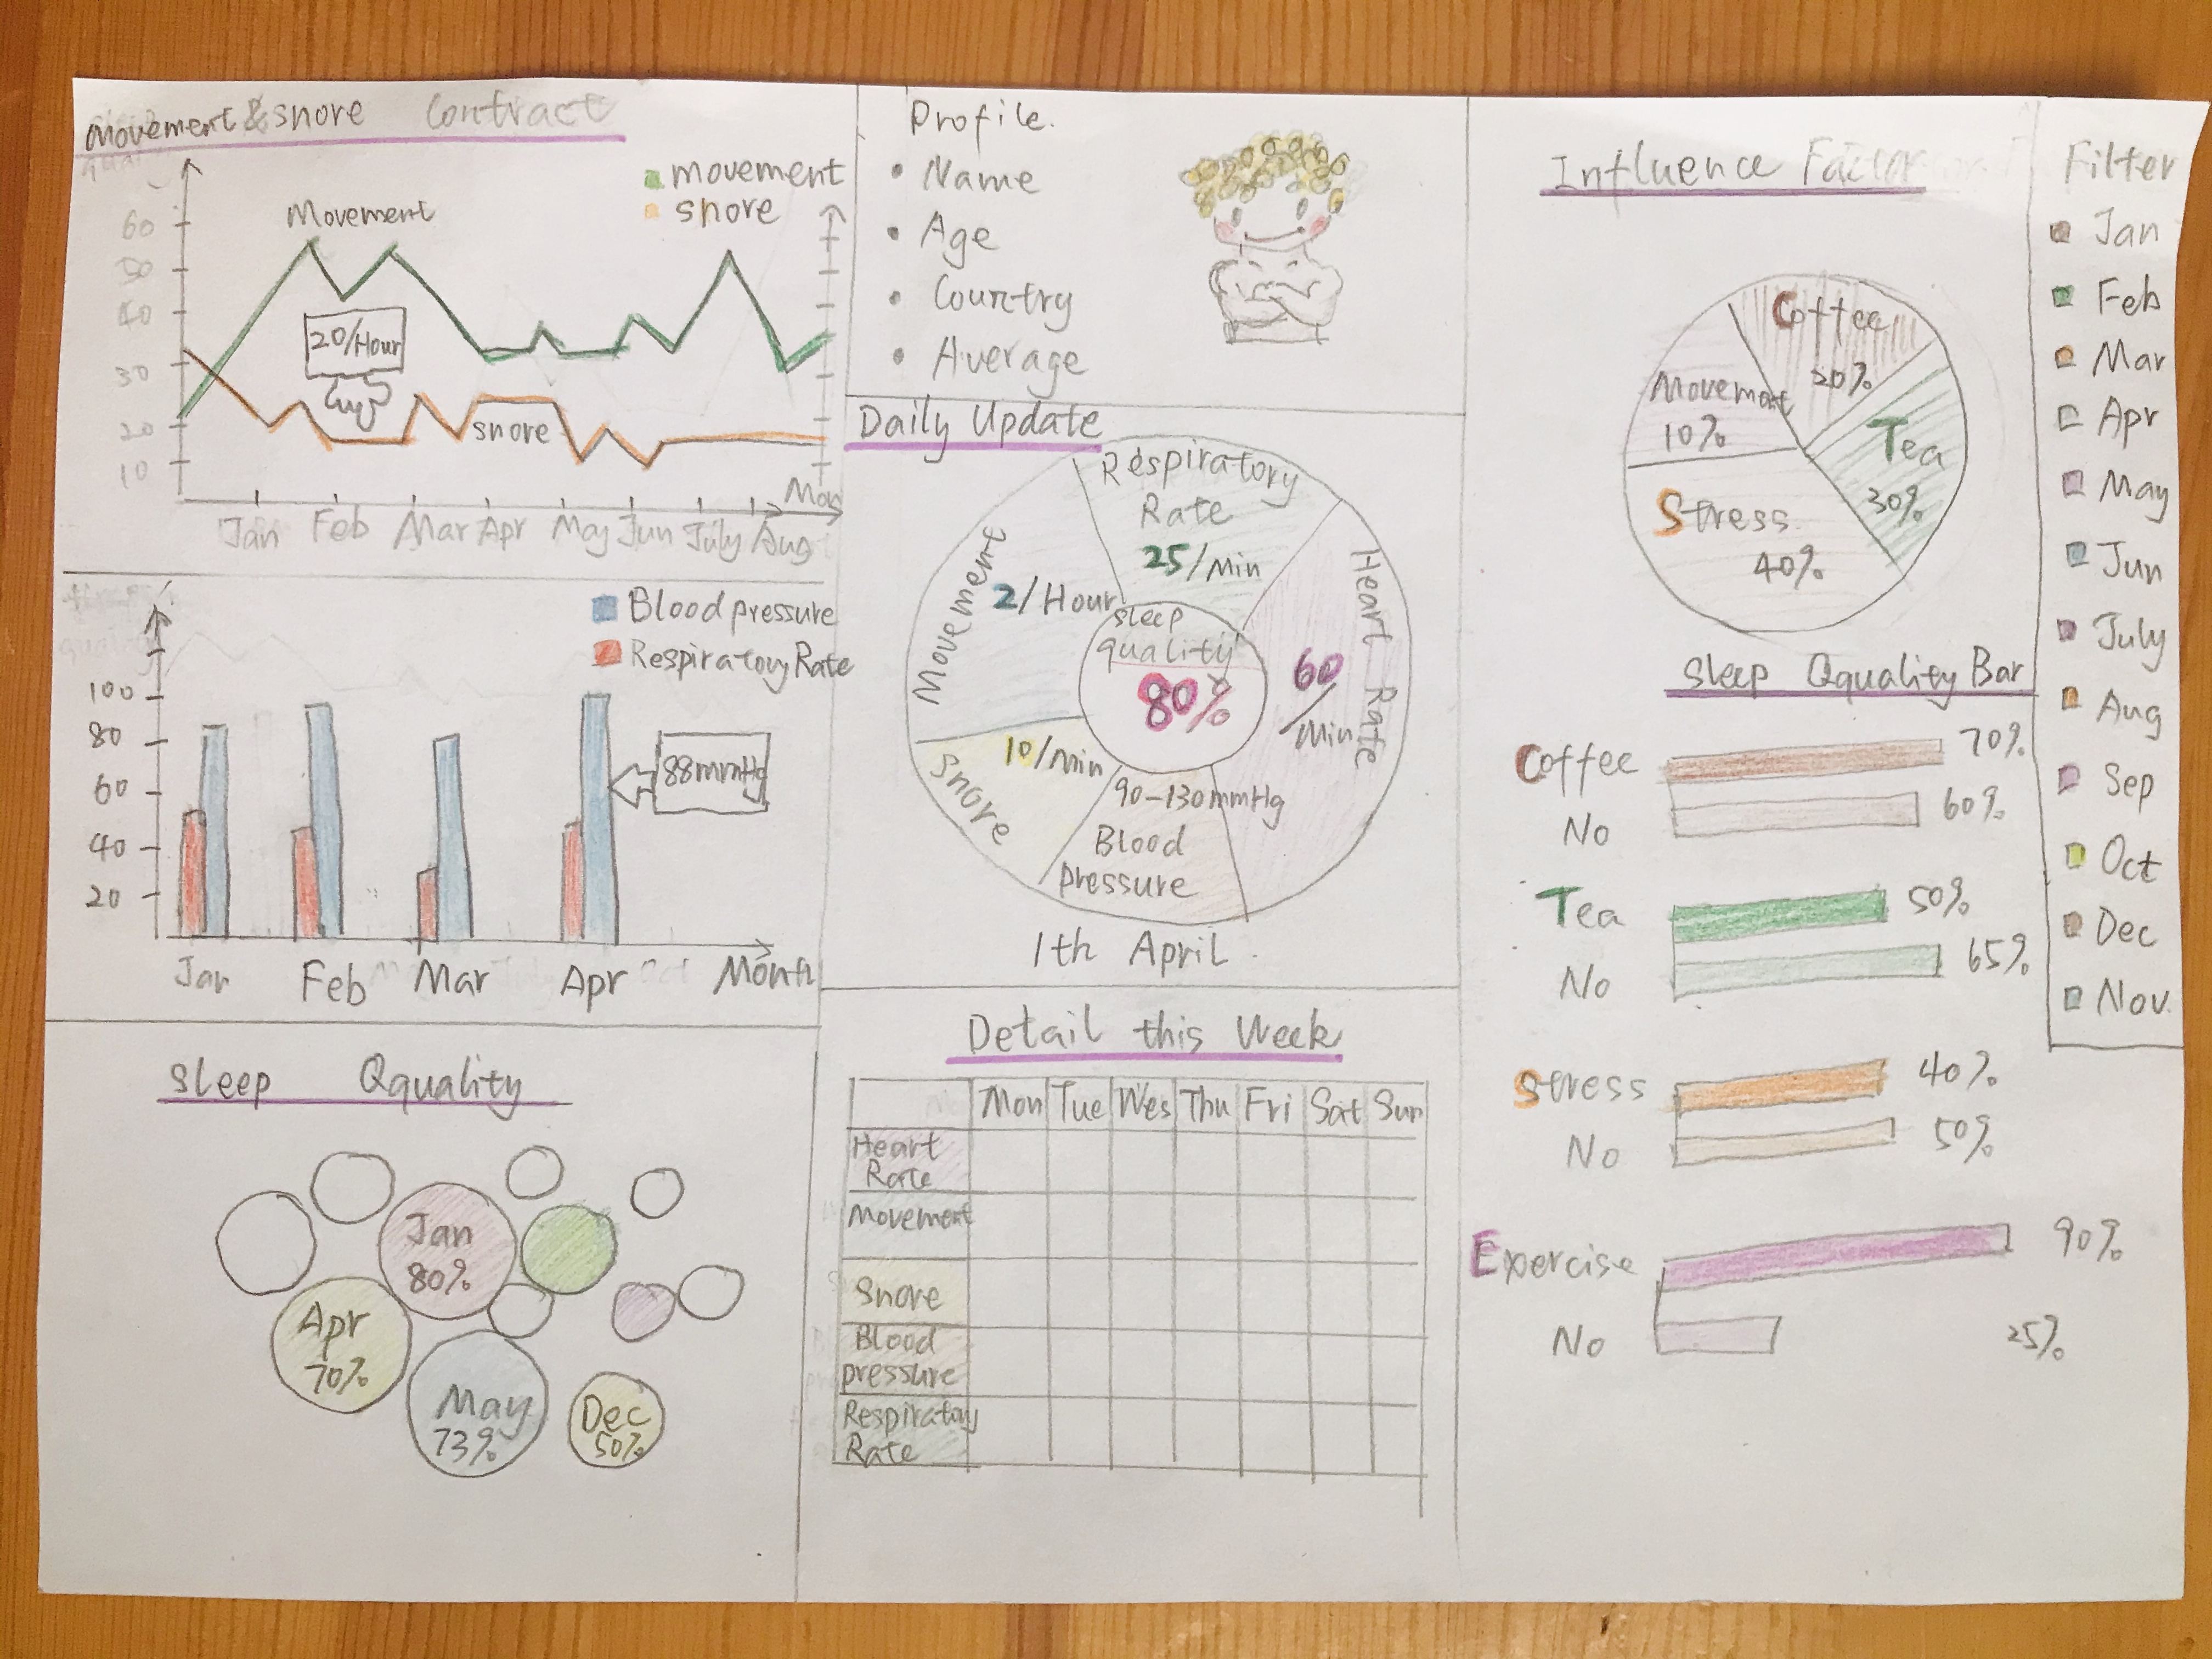 Movement & snore Contract
movement
snore
Movement
60
50
40
30
20
10
20/Hour
snore
Jan Feb Mar Apr May Jun July Aug
Mon
Blood pressure
Respiratory Rate
100
80
60
40
20
88mmHg
Jan Feb Mar Apr Month
Sleep Qquality
Jan
80%
Apr
70%
May
73%
Dec
50%
Profile.
• Name
• Age
• Country
• Average
Daily Update
Respiratory
Rate
25/Min
Heart Rate
60
/Min
Movement
2/Hour
sleep
quality
80%
Snore
10/Min
90-130mmHg
Blood
pressure
1th April.
Detail this Week
Mon Tue Wes Thu Fri Sat Sun
Heart
Rate
Movement
Snore
Blood
pressure
Respiratory
Rate
Influence Factor
Coffee
20%
Movement
10%
Tea
30%
Stress
40%
Sleep Qquality Bar
Coffee 70%
No 60%
Tea 50%
No 65%
Stress 40%
No 50%
Exercise 90%
No 25%
Filter
Jan
Feb
Mar
Apr
May
Jun
July
Aug
Sep
Oct
Dec
Nov.